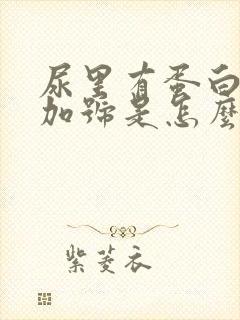 尿里有蛋白
加號是怎麼
紫菱衣